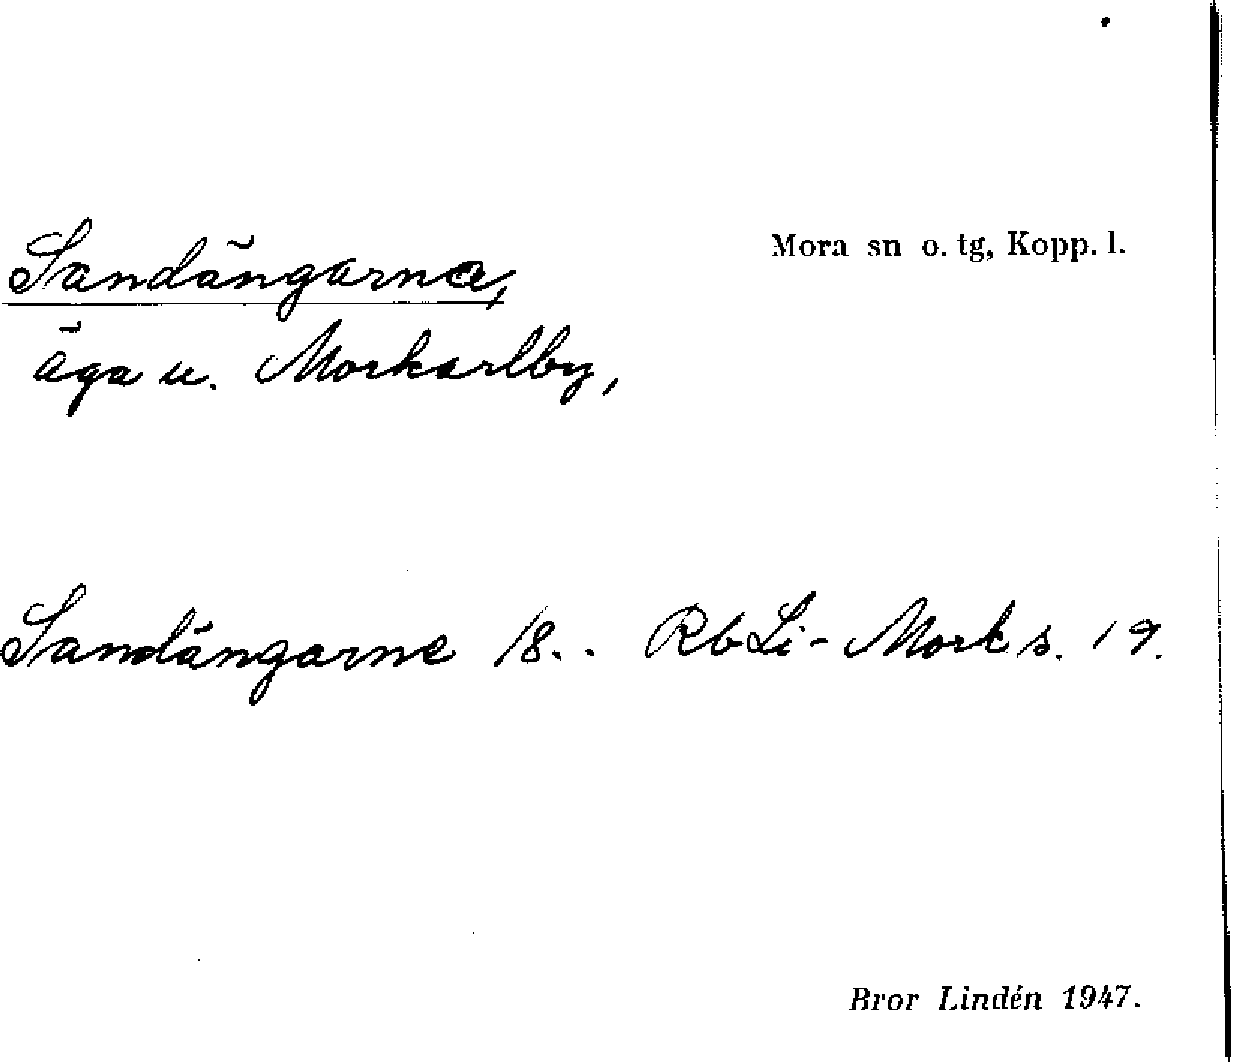 Mora sn o. tg, Kopp. l.
Sandängarna,
äga u. Morkarlby,
Sandängarne 18.. Rb Li-Mork s. 19.
Bror Lindén 1947.